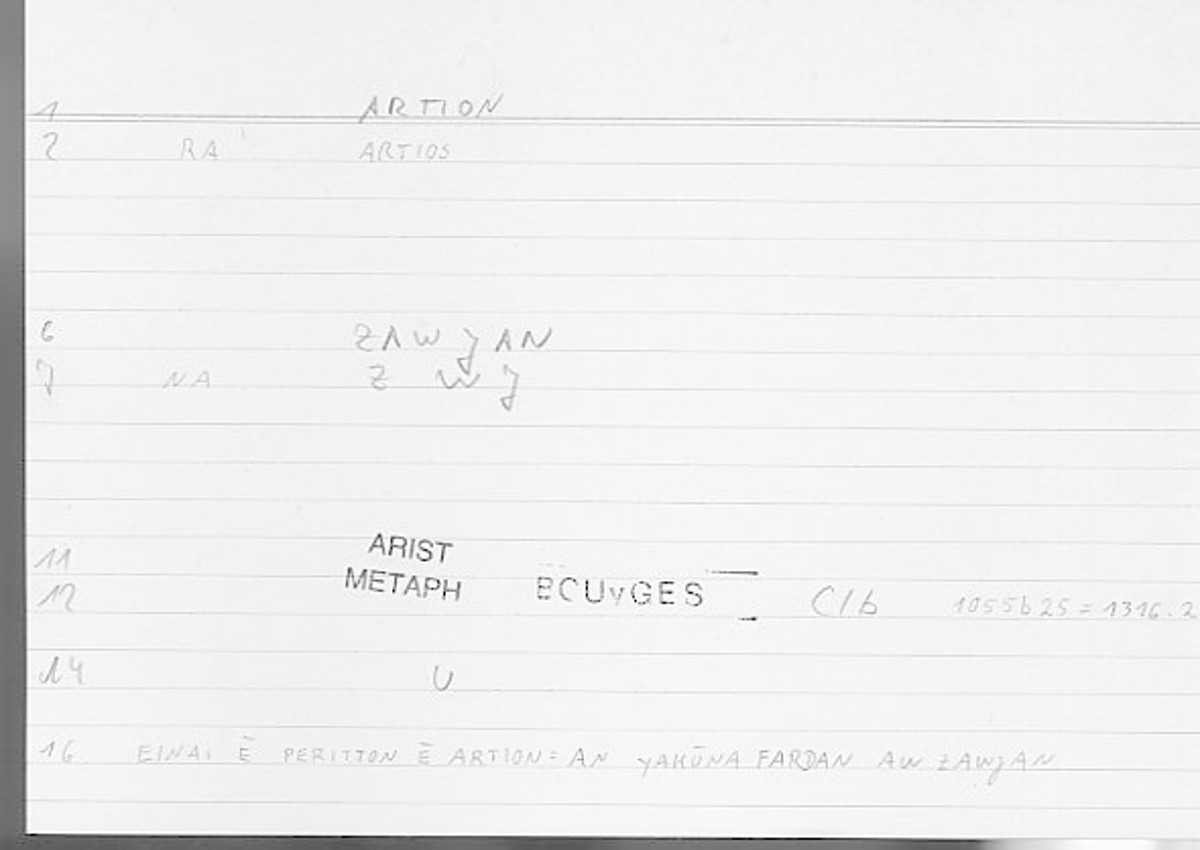 1 ARTION
2 RA ARTIOS
6 ZAWJAN
7 NA Z W J
11 ARIST
12 METAPH BOUYGES C1b 1055b25 = 1316.2
14 U
16 EINAI Ē PERITTON Ē ARTION = AN YAKŪNA FARDAN AW ZAWJAN